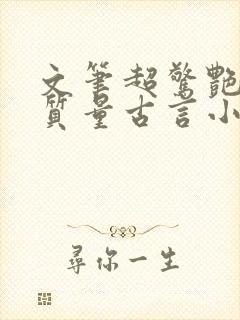 文笔超驚艷
質量古言小
尋你一生